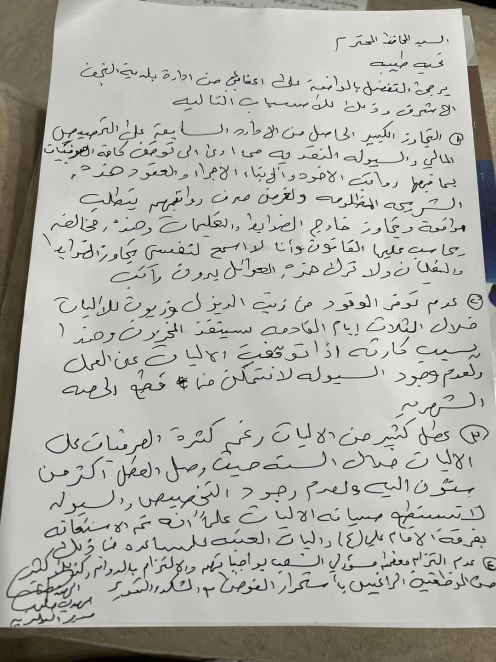 السيد المحافظ المحترم
تحية طيبة
يرجى التفضل بالموافقة على اعفائي من ادارة بلدية النجف
الاشرف وذلك للاسباب التالية
١) التجاوز الكبير الحاصل من الاداره السابقة على التخصيص
المالي والسيوله النقديه مما ادى الى توقف كافة الصرفيات
بما فيها رواتب الاخوه والابناء الاجراء والعقود هذه
الشريحه المظلومه ولغرض صرف رواتبهم يتطلب
موافقة وتجاوز خارج الضوابط والتعليمات وهذه مخالفه
يحاسب عليها القانون وانا لا اسمح لنفسي بتجاوز الضوابط
والتعليمات ولا ترك هذه العوائل بدون راتب
٢) عدم توفر الوقود من زيت الديزل وزيوت للاليات
خلال الثلاث ايام القادمه سينفذ المخزون وهذا
يسبب كارثه اذا توقفت الاليات عن العمل
ولعدم وجود السيوله لانتمكن من قطع الحصه
الشهريه
٣) عطل كثير من الاليات رغم كثرة الصرفيات على
الاليات خلال السته حيث وصل العطل اكثر من
ستون اليه ولعدم وجود التخصيص والسيوله
لانستطيع صيانه الاليات علماً انه تم الاستعانه
بفرقة الامام علي (ع) واليات العتبه للمساعده في ذلك
٤) عدم التزام معظم مسؤولي الشعب بواجباتهم والالتزام بالدوام وكذلك كثير
من الراغبين باستمرار الفوضى مع الشكر والتقدير
المهندس
مدير البلدية